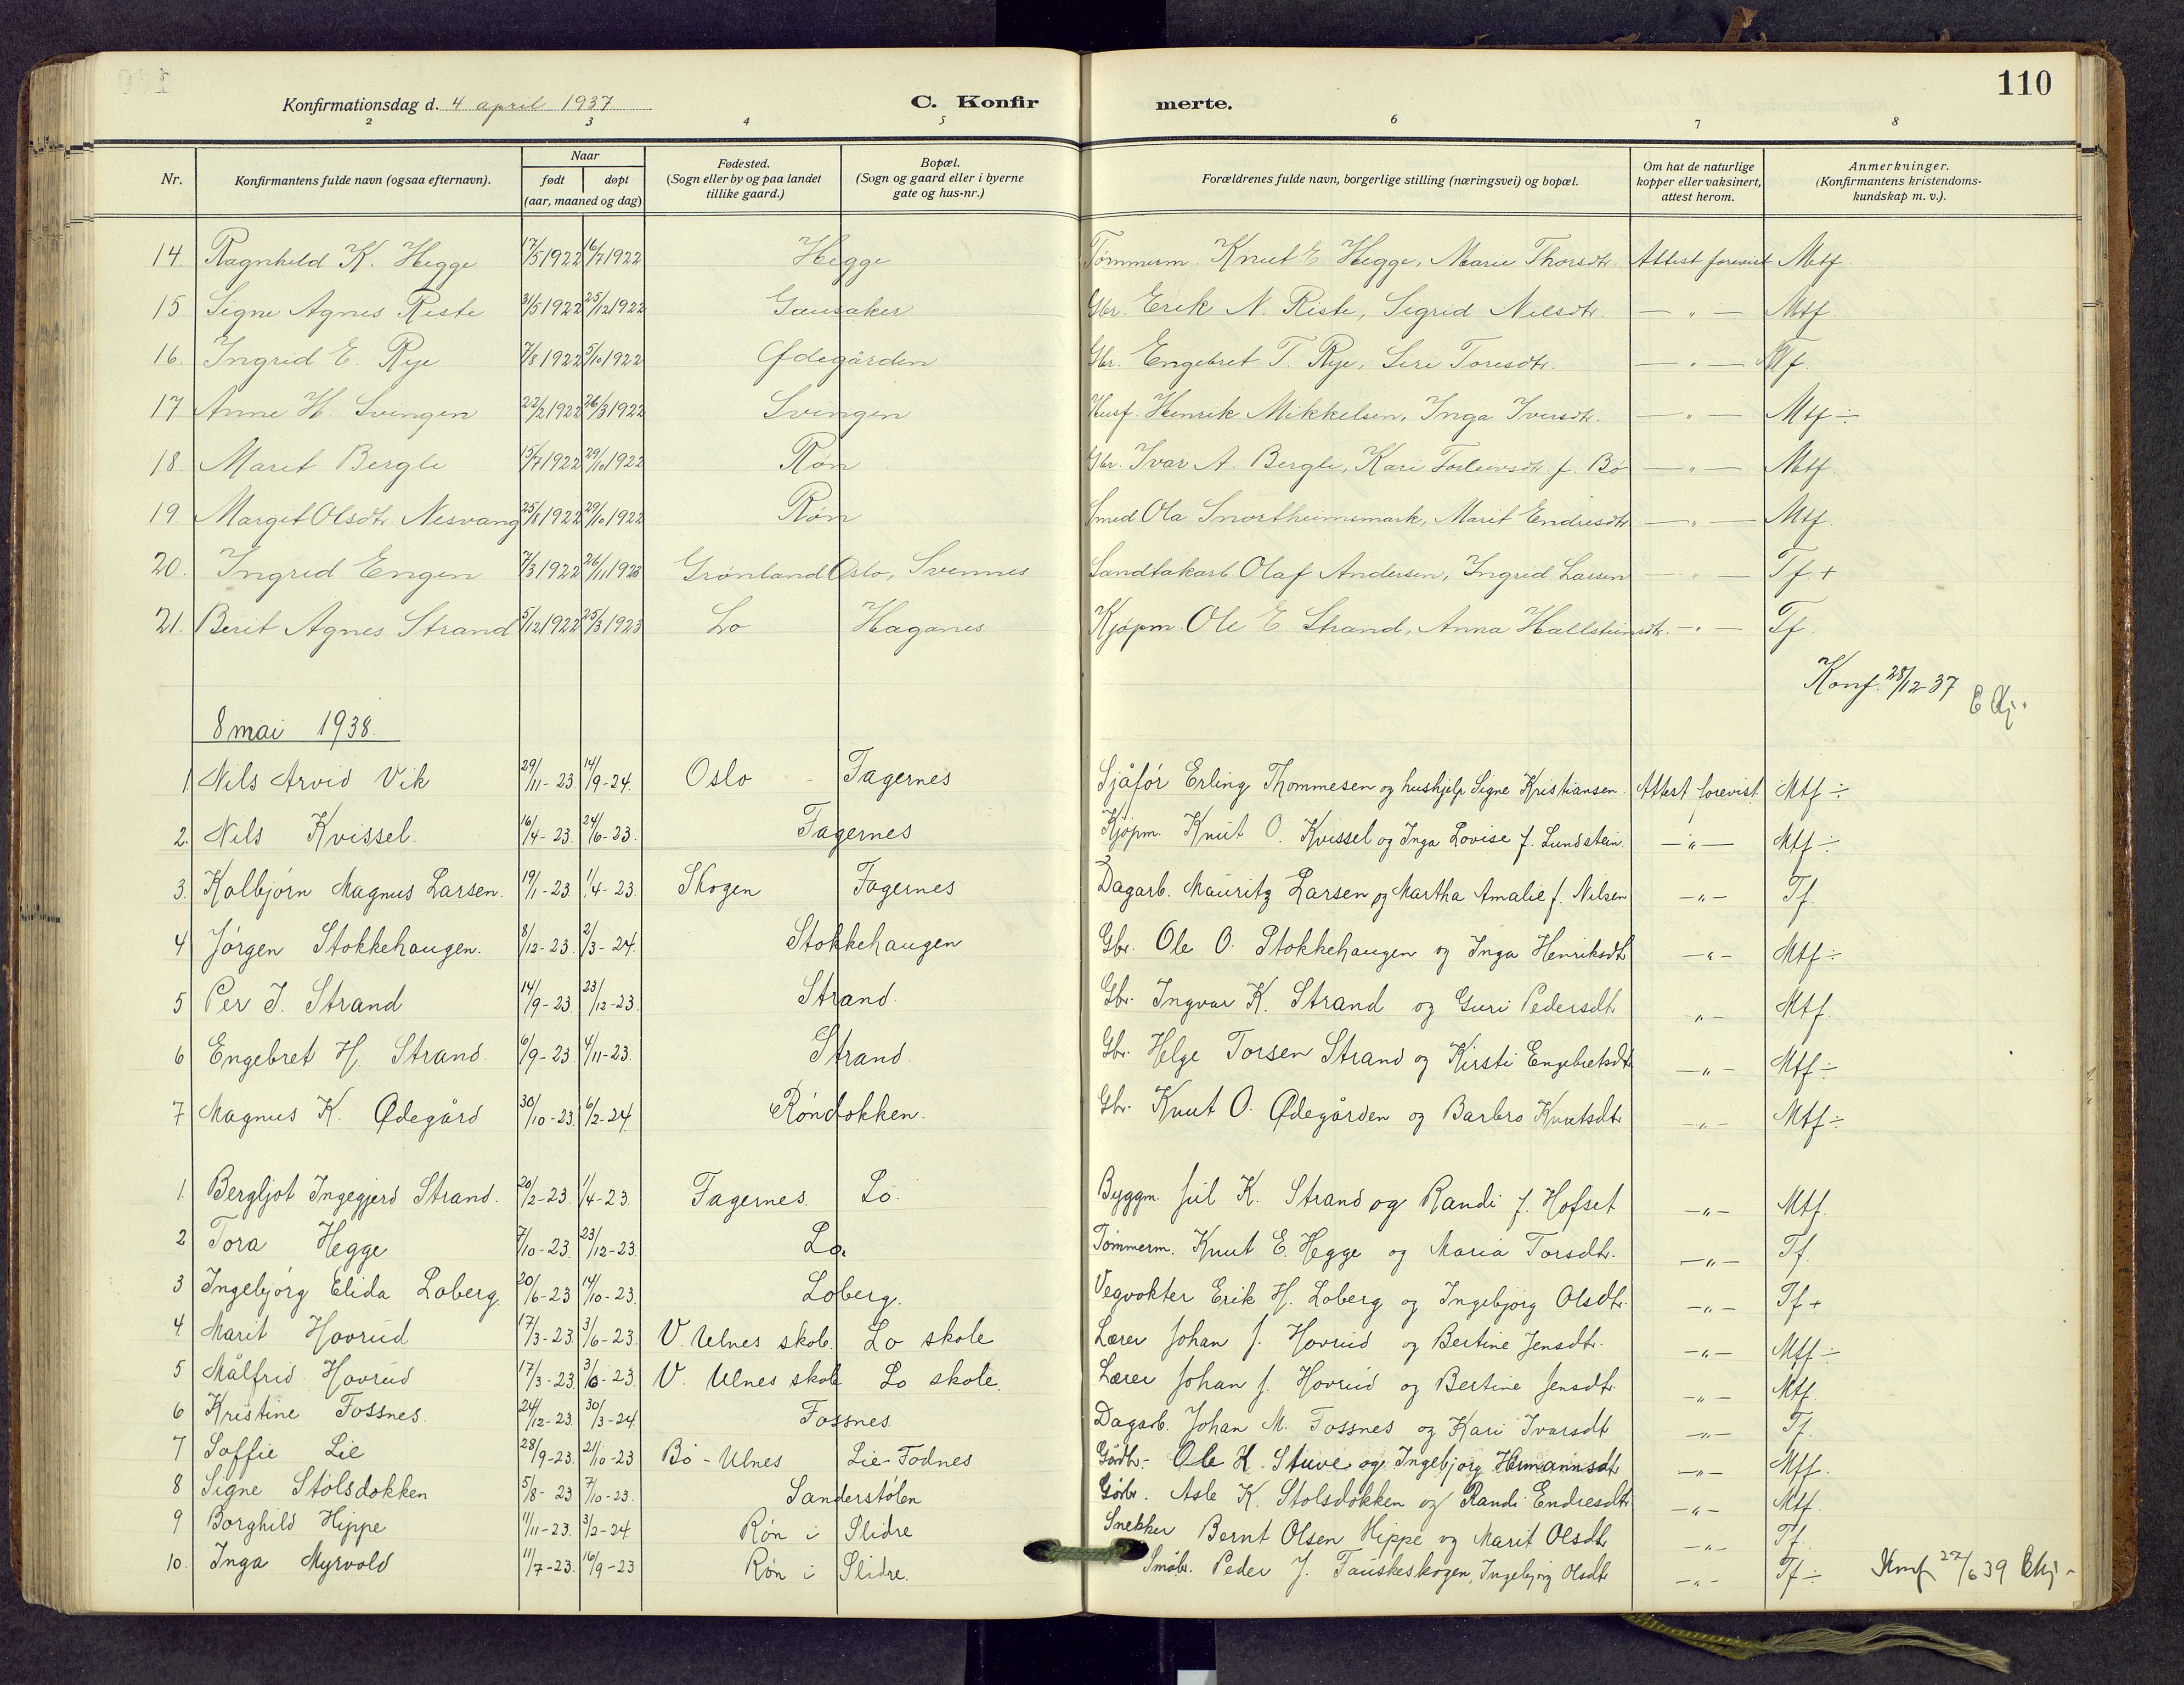 110
Konfirmationsdag d. 4 april 1937 C. Konfir merte.
2 3 4 5 6 7 8
Nr. Konfirmantens fulde navn (ogsaa efternavn). Naar født døpt (aar, maaned og dag) Fødested. (Sogn eller by og paa landet tillike gaard.) Bopæl. (Sogn og gaard eller i byerne gate og hus-nr.) Forældrenes fulde navn, borgerlige stilling (næringsvei) og bopæl. Om hat de naturlige kopper eller vaksinert, attest herom. Anmerkninger. (Konfirmantens kristendoms-kundskap m. v.).
14. Ragnhild K. Hegge 17/5 1922 16/7 1922 Hegge Tømmerm. Knut E. Hegge, Marie Thorsdtr. Attest forevist Mtf.
15. Signe Agnes Riste 31/5 1922 25/12 1922 Gausaker Gbr. Erik N. Riste, Sigrid Nilsdtr. — " — Mtf.
16. Ingrid E. Rye 7/8 1922 5/10 1922 Ødegården Gbr. Engebret T. Rye, Siri Toresdtr. — " — Tf.
17 Anne H. Svingen 22/2 1922 26/3 1922 Svingen Husf. Henrik Mikkelsen, Inga Iversdtr. — " — Mtf ÷
18. Marit Bergle 15/7 1922 29/10 1922 Røn Gbr. Ivar A. Bergle, Kari Torleivsdtr f. Bø — " — Mtf.
19. Margit Olsdtr. Nesvang 25/8 1922 29/10 1922 Røn Smed Ola Snortheimsmark, Marit Endresdtr — " — Mtf.
20. Ingrid Engen 7/3 1922 26/11 1923 Grønland Oslo, Svennes Sandtakarb. Olaf Andersen, Ingrid Larsen — " — Tf. +
21. Berit Agnes Strand 5/12 1922 25/3 1923 Lo Haganes Kjøpm. Ole E. Strand, Anna Hallsteinsdtr. — " — Tf.
Konf. 28/12 37 E Kj.
8 mai 1938.
1. Nils Arvid Vik 29/11-23 14/9-24. Oslo - Fagernes Sjåfør Erling Thommesen og hushjelp Signe Kristiansen. Attest forevist Mtf ÷
2. Nils Kvissel. 16/4-23. 24/6-23. Fagernes Kjøpm. Knut O. Kvissel og Inga Lovise f. Lundstein. — " — Mtf ÷
3. Kolbjørn Magnus Larsen. 19/1-23 1/4-23 Skogen Fagernes Dagarb. Mauritz Larsen og Martha Amalie f. Nilsen — " — Tf.
4 Jørgen Stokkehaugen. 8/12-23. 2/3-24. Stokkehaugen Gbr. Ole O. Stokkehaugen og Inga Henriksdtr — " — Mtf ÷
5 Per I. Strand 14/9-23. 23/12-23. Strand. Gbr. Ingvar K. Strand og Guri Pedersdtr. — " — Mtf.
6 Engebret H. Strand. 6/9-23. 4/11-23. Strand. Gbr. Helge Torsen Strand og Kirsti Engebretsdtr — " — Mtf ÷
7 Magnus K. Ødegård 30/10-23. 6/2-24 Røndokken. Gbr. Knut O. Ødegården og Barbro Knutsdtr — " — Mtf ÷
1. Bergljot Ingegjerd Strand. 20/2-23. 1/4-23. Fagernes. Lo. Byggm. Jul K. Strand og Randi f. Hofset — " — Mtf.
2 Tora Hegge 7/10-23. 23/12-23. Lo. Tømmerm. Knut E. Hegge og Maria Torsdtr. — " — Tf.
3 Ingebjørg Elida Loberg. 20/6-23 14/10-23. Loberg. Vegvokter Erik H. Loberg og Ingebjørg Olsdtr. — " — Tf +
4 Marit Hovrud 17/3-23 3/6-23. V. Ulnes skole. Lo skole Lærer Johan J. Hovrud og Bertine Jensdtr. — " — Mtf ÷
5 Målfrid Hovrud 17/3-23 3/6-23. V. Ulnes skole Lo skole. Lærer Johan J. Hovrud og Bertine Jensdtr. — " — Mtf.
6 Kristine Fossnes. 24/12-23. 30/3-24 Fossnes. Dagarb. Johan M. Fossnes og Kari Ivarsdtr — " — Tf.
7 Soffie Lie 28/9-23. 21/10-23 Bø - Ulnes Lie-Fodnes Gårdbr. - Ole H. Stuve og Ingebjørg Hermannsdtr — " — Mtf.
8 Signe Stølsdokken 5/8-23 7/10-23. Sanderstølen Gårdbr. Asle K. Stølsdokken og Randi Endresdtr — " — Mtf.
9 Borghild Hippe 11/11-23. 3/2-24 Røn i Slidre Snekker Bernt Olsen Hippe og Marit Olsdtr — " — Tf.
10. Inga Myrvold 11/7-23. 16/9-23 Røn i Slidre. Småbr. Peder J. Fauskeskogen, Ingebjørg Olsdtr — " — Tf ÷ Konf 27/6 39 EKj -